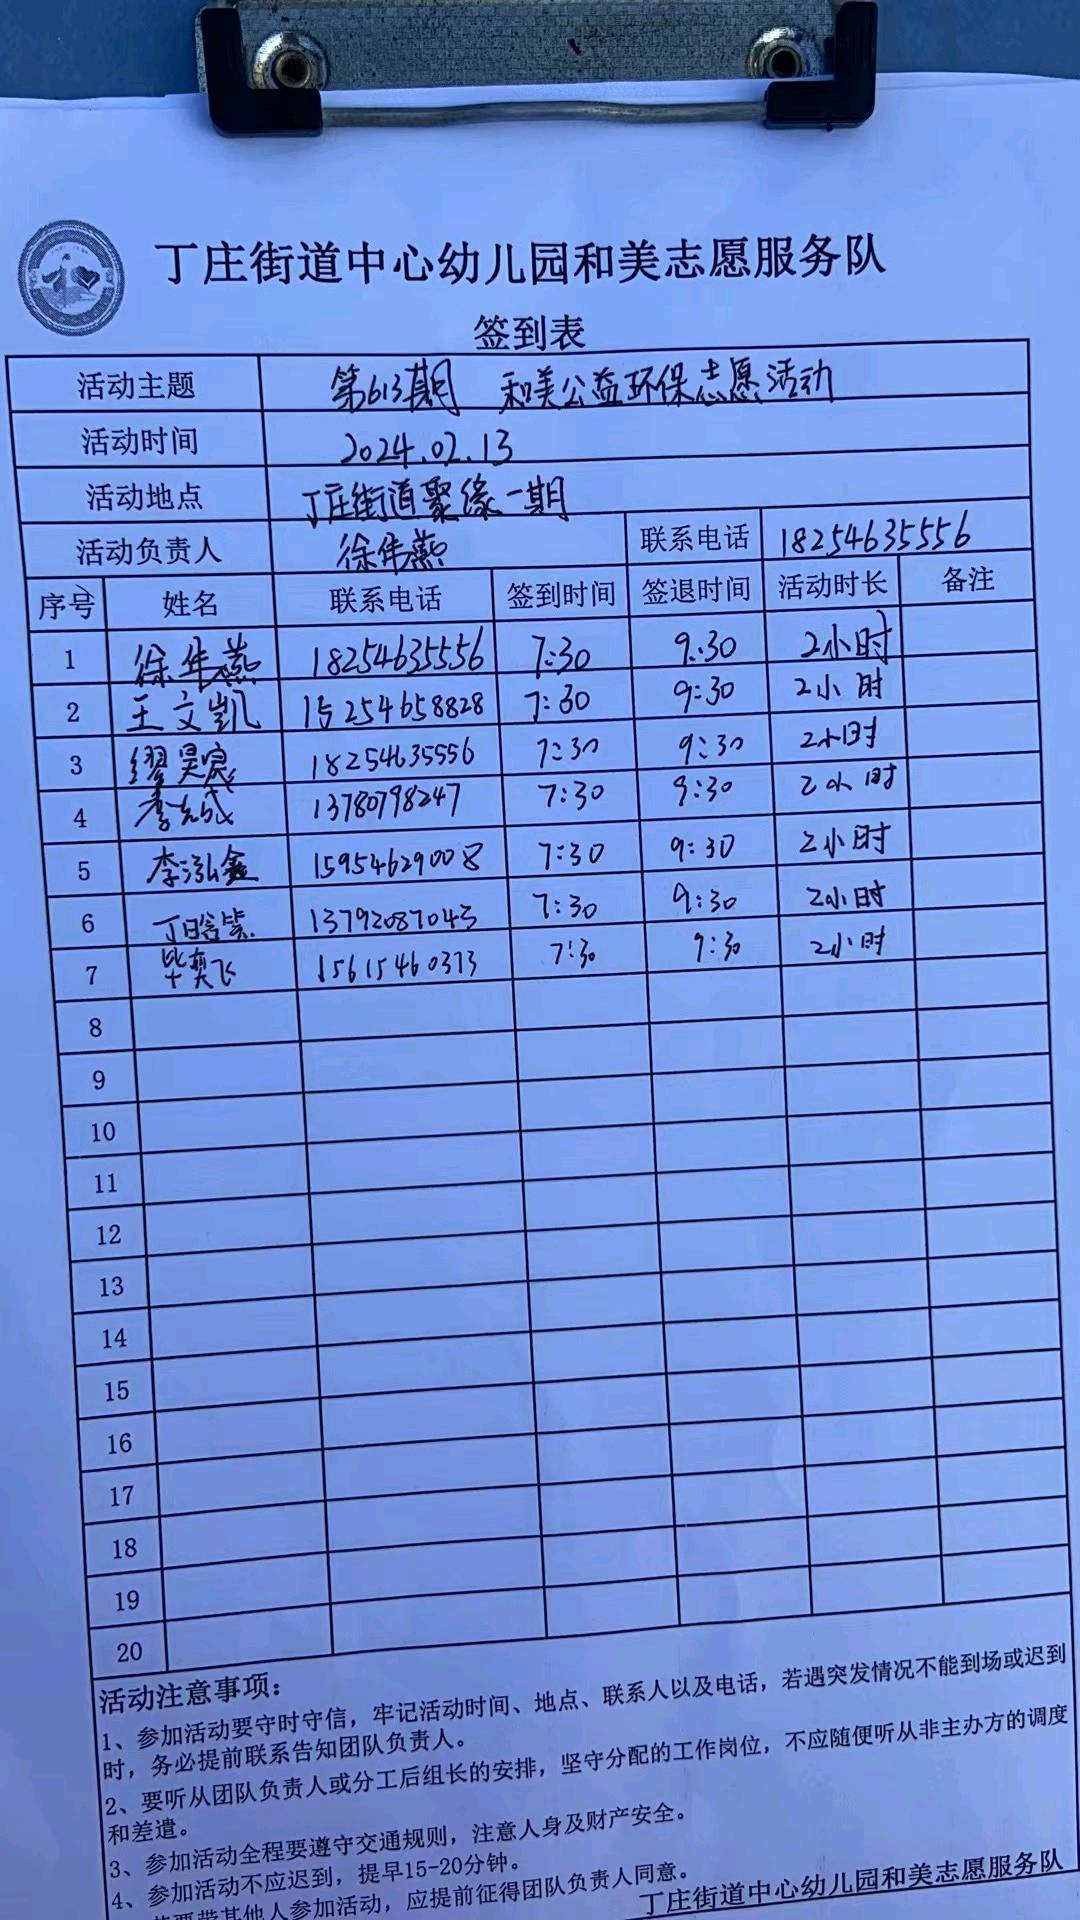 丁庄街道中心幼儿园和美志愿服务队
签到表
活动主题 第613期 和美公益环保志愿活动
活动时间 2024.02.13
活动地点 丁庄街道聚缘一期
活动负责人 徐伟燕 联系电话 18254635556
序号 姓名 联系电话 签到时间 签退时间 活动时长 备注
1 徐伟燕 18254635556 7:30 9:30 2小时
2 王文凯 15254658828 7:30 9:30 2小时
3 缪昊宸 18254635556 7:30 9:30 2小时
4 李成 13780798247 7:30 9:30 2小时
5 李泓鑫 15954629008 7:30 9:30 2小时
6 丁晗 13792087043 7:30 9:30 2小时
7 毕奕飞 15615460373 7:30 9:30 2小时
8
9
10
11
12
13
14
15
16
17
18
19
20
活动注意事项：
1、参加活动要守时守信，牢记活动时间、地点、联系人以及电话，若遇突发情况不能到场或迟到
时，务必提前联系告知团队负责人。
2、要听从团队负责人或分工后组长的安排，坚守分配的工作岗位，不应随便听从非主办方的调度
和差遣。
3、参加活动全程要遵守交通规则，注意人身及财产安全。
4、参加活动不应迟到，提早15-20分钟。
若要带其他人参加活动，应提前征得团队负责人同意。
丁庄街道中心幼儿园和美志愿服务队